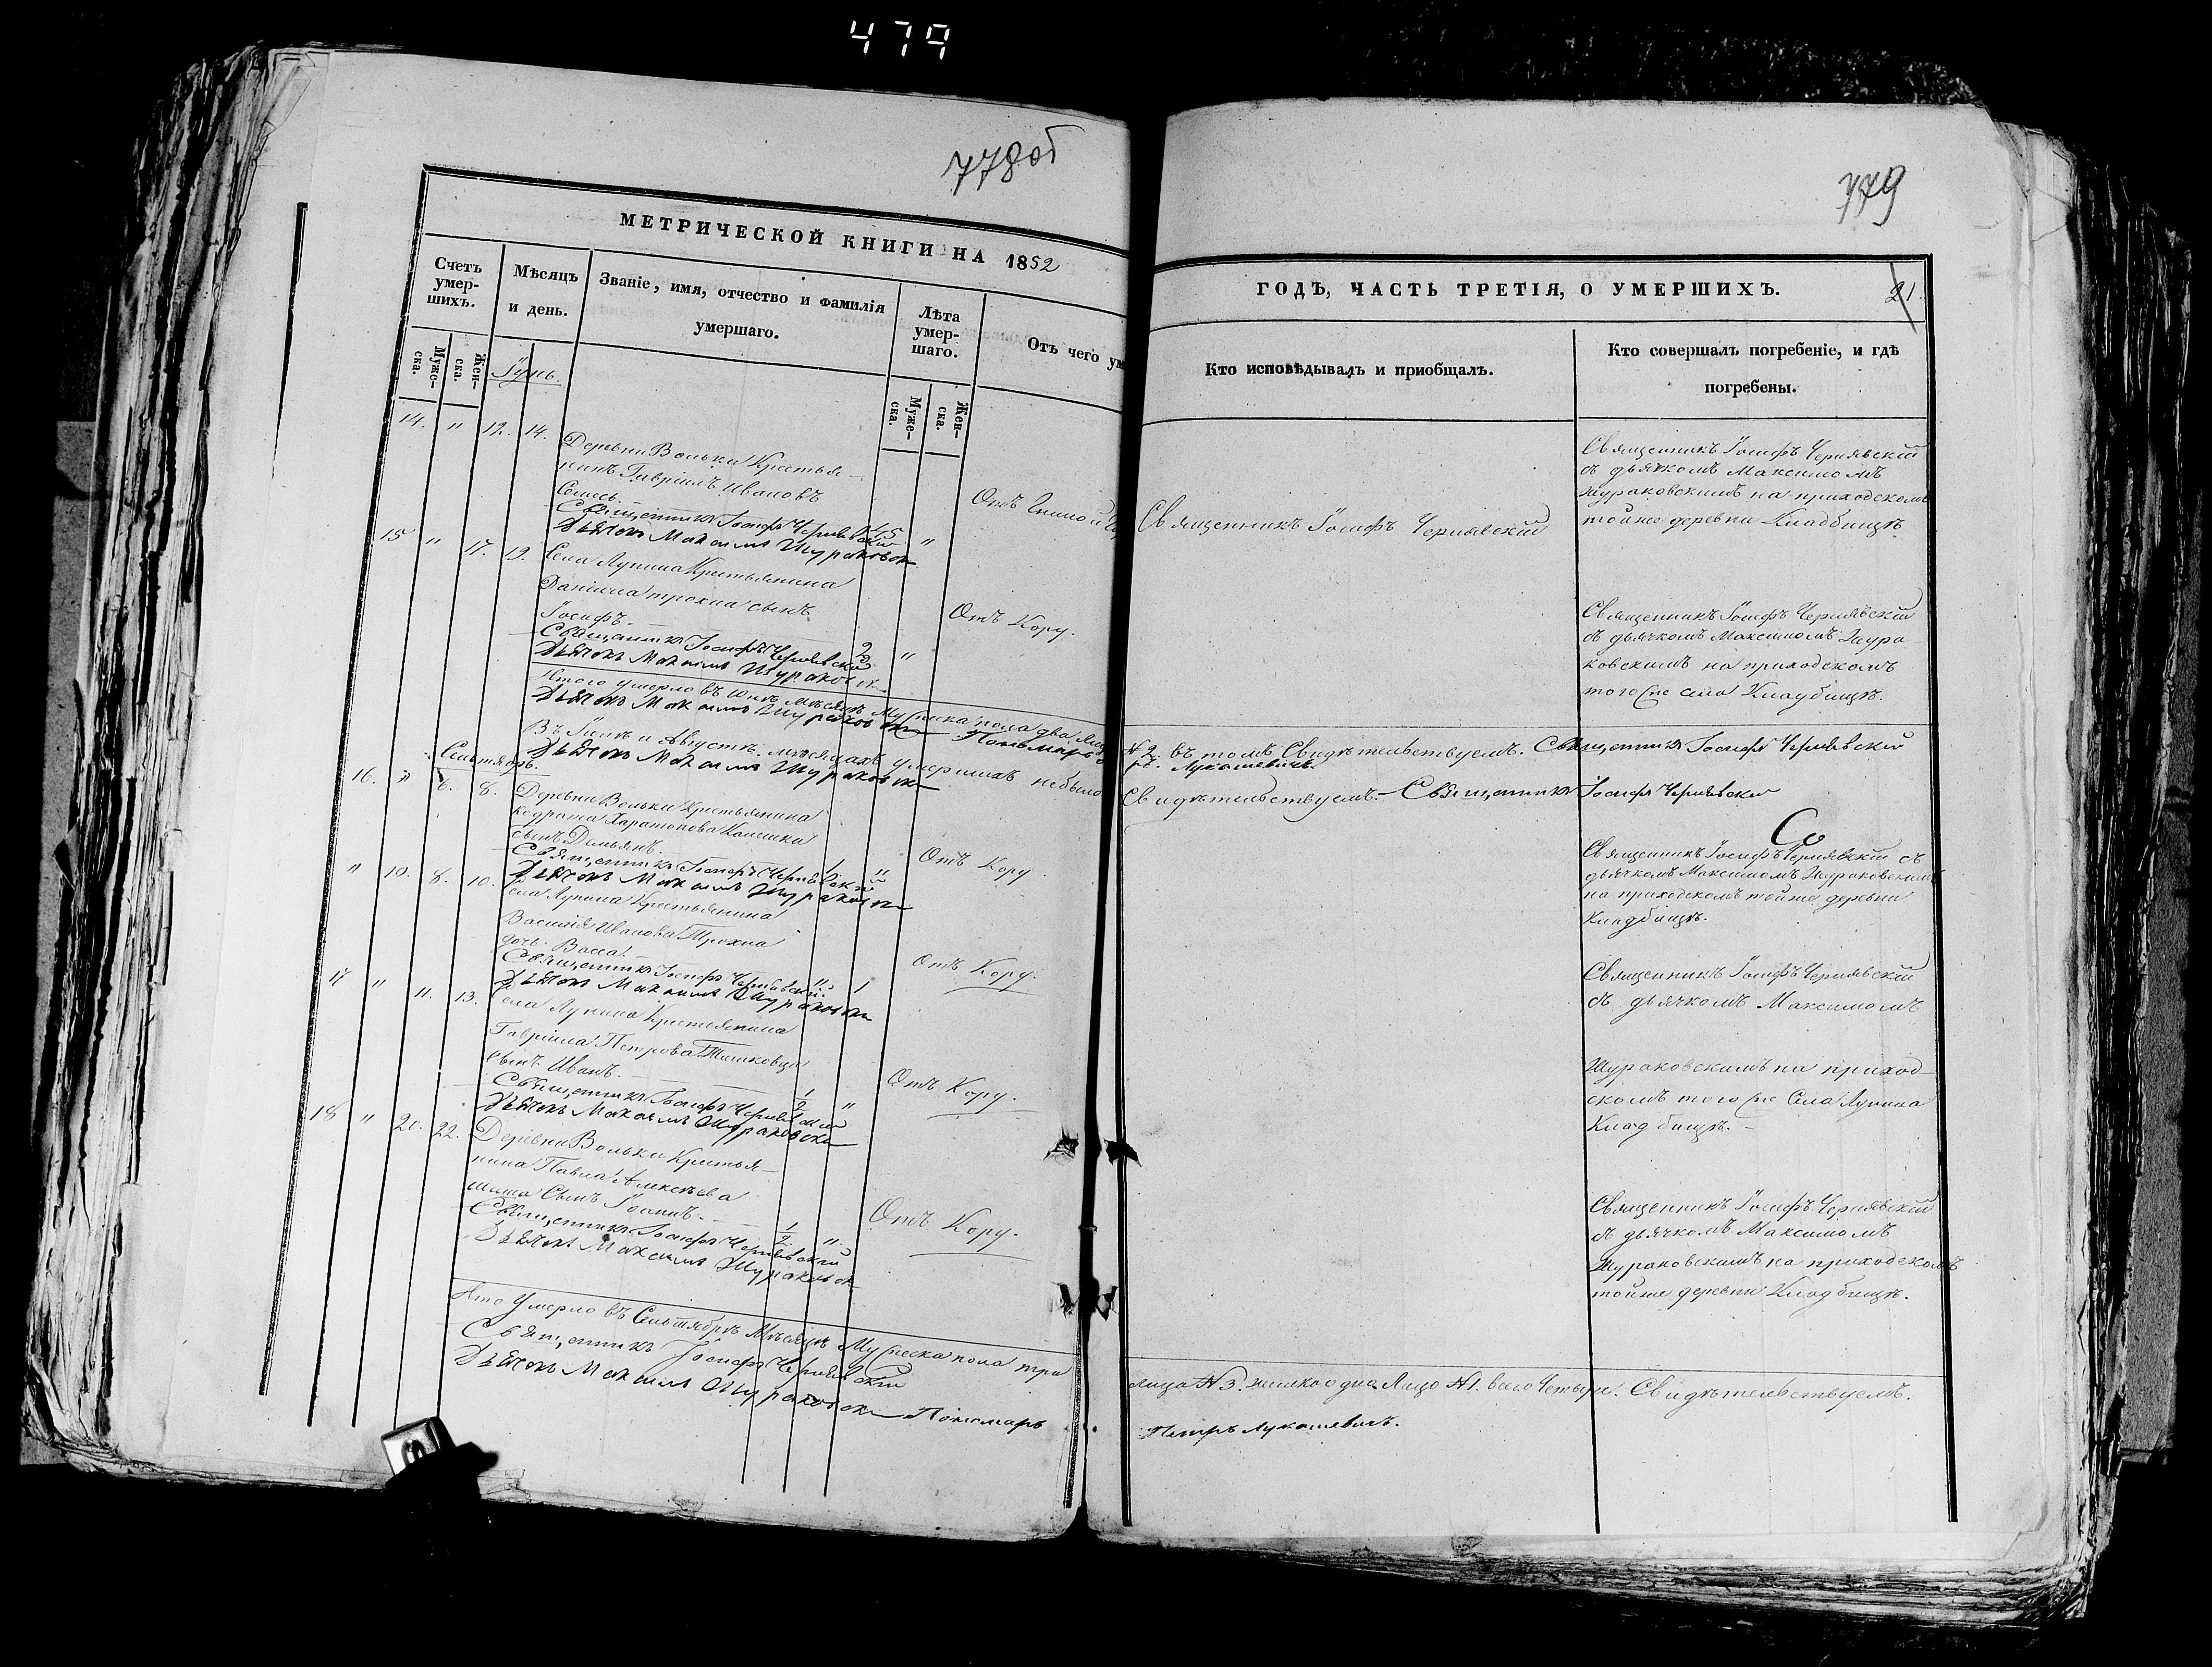 479
778об
МЕТРИЧЕСКОЙ КНИГИ НА 1852
Счетъ умер-шихъ.
Мѣсяцъ и день.
Званіе, имя, отчество и фамилія умершаго.
Лѣта умер-шаго.
Отъ чего ум
Муже-ска.
Жен-ска.
Іунь.
Муже-ска.
Жен-ска.
14. " 12. 14.
Деревни Вольки Крестья-
нинъ Гавріилъ Ивановъ
Семесь. 45 "
Отъ
Священникъ Іосифъ Чернявскій
Дьячокъ Максимъ Жураковск
15 " 17. 19. Села Лунина Крестьянина
Даніила трохна сынъ
Іосифъ. 2 "
Отъ Кору.
Священникъ Іосифъ Чернявскій
Дьячокъ Максимъ Жураковск
Итого умерло въ Іюнѣ мѣсяцѣ Мужеска пола два лица
Дьячокъ Максимъ Жураковск Пономарь
Въ Іюлѣ и Августѣ мѣсяцахъ умершихъ небыло
Дьячокъ Максимъ Жураковск
Сентябрь.
16. " 6. 8. Деревни Вольки Крестьянина
Кодрата Харатонова
сынъ Демьянъ. "
Отъ Кору.
Священникъ Іосифъ Чернявскій
Дьячокъ Максимъ Жураковск
" 10. 8. 10. Села Лунина Крестьянина
Василія Иванова Трохна
дочь Васса. " 1
Отъ Кору.
Священникъ Іосифъ Чернявскій.
Дьячокъ Максимъ Жураковск
17 " 11. 13. Села Лунина Крестьянина
Гавріила Петрова Тишковца
сынъ Иванъ. 1/2 "
Отъ Кору.
Священникъ Іосифъ Чернявскій
Дьячокъ Максимъ Жураковск
18 " 20. 22. Деревни Вольки Крестья-
нина Павла Алексѣева
Сынъ Іоаннъ. 1/2 "
Отъ Кору.
Священникъ Іосифъ Чернявскій
Дьячокъ Максимъ Жураковск
Итого Умерло въ Сентябрѣ Мѣсяцѣ Мужеска пола три
Священникъ Іосифъ Чернявскій
Дьячокъ Максимъ Жураковск Пономарь
779
ГОДЪ, ЧАСТЬ ТРЕТІЯ, О УМЕРШИХЪ.
21.
Кто исповѣдывалъ и приобщалъ.
Кто совершалъ погребеніе, и гдѣ погребены.
Священникъ Іосифъ Чернявскій
Священникъ Іосифъ Чернявскій
съ дьячкомъ Максимомъ
Жураковскимъ на приходскомъ
тойже деревни Кладбищѣ.
Священникъ Іосифъ Чернявскій
съ дьячкомъ Максимомъ Жура-
ковскимъ на приходскомъ
того же села Кладбищѣ.
№ 2. въ томъ Свидѣтельствуемъ. Священникъ Іосифъ Чернявскій
Лукашевичъ.
Свидѣтельствуемъ. Священникъ Іосифъ Чернявскій
Священникъ Іосифъ Чернявскій съ
дьячкомъ Максимомъ Жураковскимъ
на приходскомъ тойже деревни
Кладбищѣ.
Священникъ Іосифъ Чернявскій
съ дьячкомъ Максимомъ
Жураковскимъ на приход-
скомъ того же Села Лунина
Кладбищѣ.
Священникъ Іосифъ Чернявскій
съ дьячкомъ Максимомъ
Жураковскимъ на приходскомъ
тойже деревни Кладбищѣ.
лица №3. женска одно Лицо №1. всего Четыре. Свидѣтельствуемъ.
Петръ Лукашевичъ.